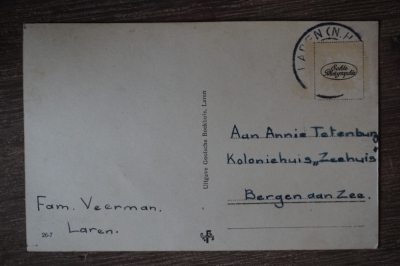 LAREN (N.H.
Echte
Photographie
Aan Annie Tetenburg
Koloniehuis „Zeehuis"
Bergen aan Zee.
Uitgave Gooische Boekhuis, Laren
Fam. Veerman.
Laren.
26-7